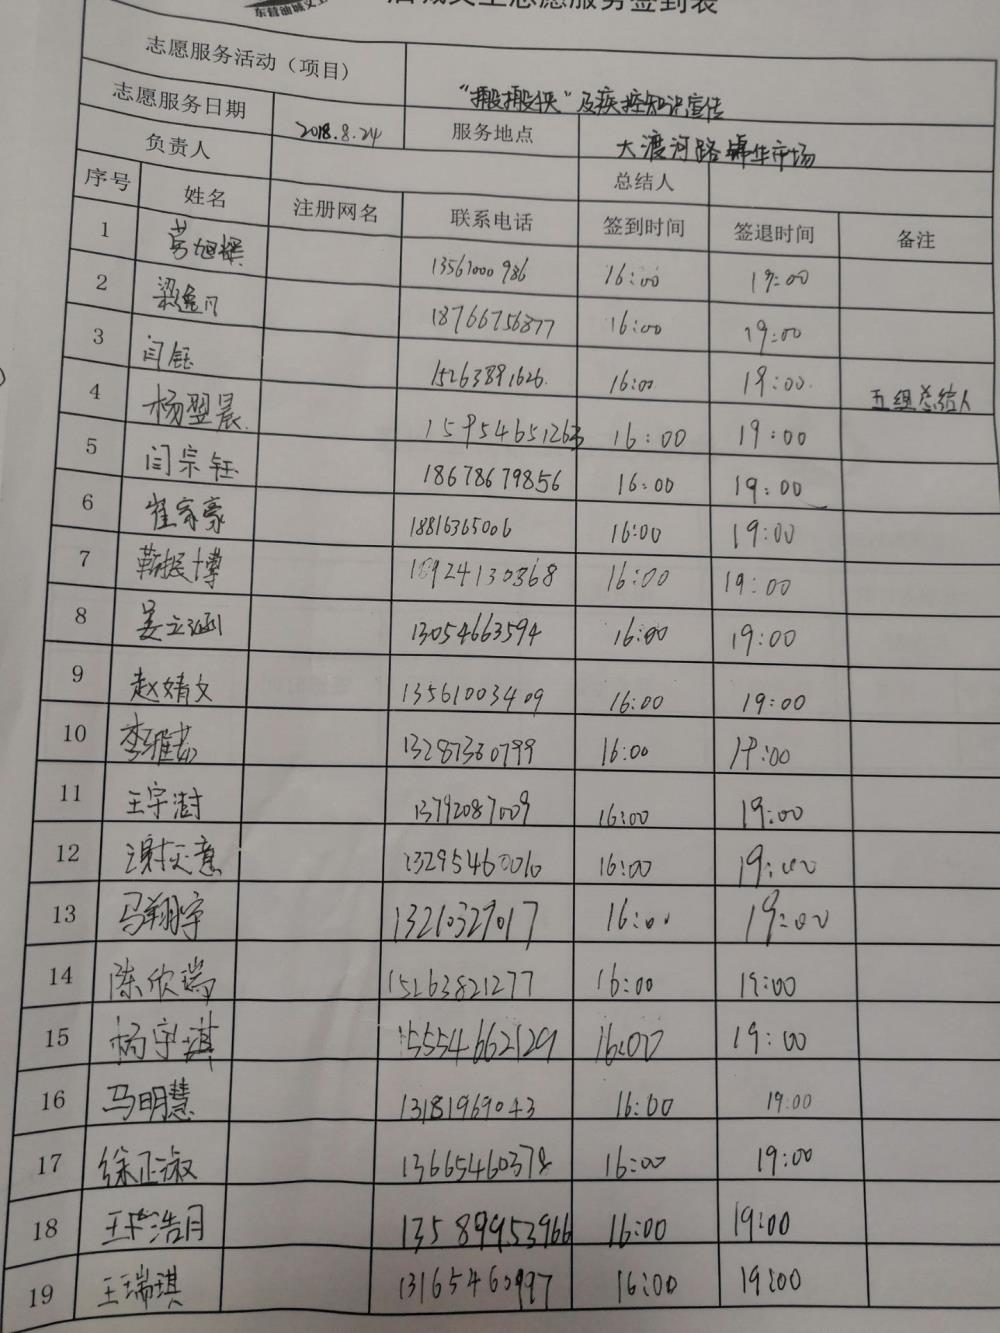 东营油城义工
油城义工志愿服务签到表
志愿服务活动（项目） “搬搬侠”及疾控知识宣传
志愿服务日期 2018.8.24 服务地点 大渡河路锦华市场
负责人 总结人
序号 姓名 注册网名 联系电话 签到时间 签退时间 备注
1 13561000986 16:00 19:00
2 梁逸凡 18766756877 16:00 19:00
3 闫钰 15263891626 16:00 19:00 五组总结人
4 杨翌晨 15954651263 16:00 19:00
5 闫宗钰 18678679856 16:00 19:00
6 崔家豪 18816365006 16:00 19:00
7 靳振博 18924130368 16:00 19:00
8 姜立涵 13054663594 16:00 19:00
9 赵婧文 13561003409 16:00 19:00
10 李雅茹 13287360799 16:00 19:00
11 王宇澍 13792087009 16:00 19:00
12 谢天意 13295460010 16:00 19:00
13 马翔宇 13210329017 16:00 19:00
14 陈欣瑞 15263821277 16:00 19:00
15 杨宇琪 15554662129 16:00 19:00
16 马明慧 13181969043 16:00 19:00
17 徐正淑 13665460378 16:00 19:00
18 王浩月 13589953966 16:00 19:00
19 王瑞琪 13165460997 16:00 19:00